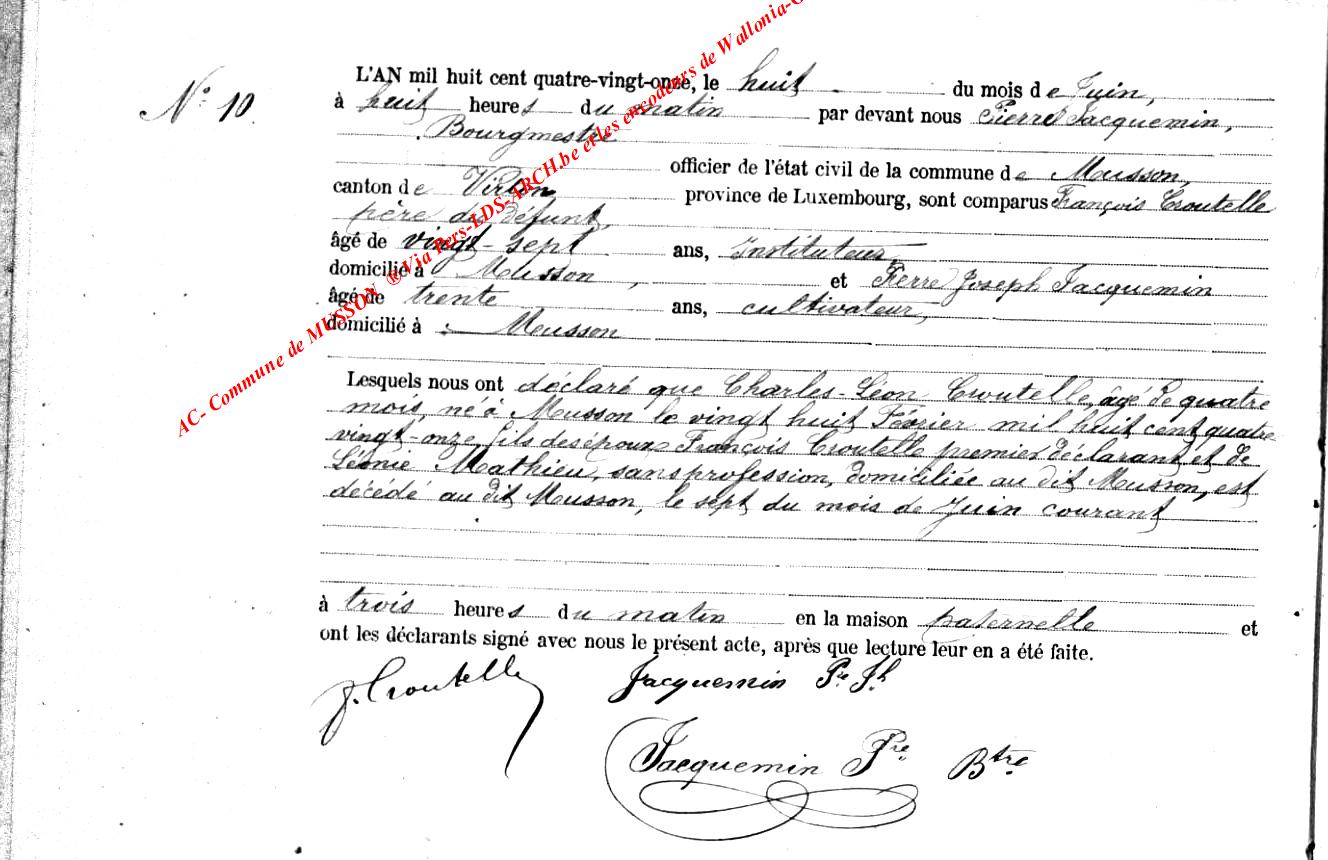 N° 10.
L'AN mil huit cent quatre-vingt-onze, le huit du mois de Juin,
à huit heures du matin par devant nous Pierre Jacquemin,
Bourgmestre
officier de l'état civil de la commune de Musson,
canton de Virton province de Luxembourg, sont comparus François Croutelle
père du défunt,
âgé de vingt-sept ans, Instituteur,
domicilié à Musson, et Pierre Joseph Jacquemin
âgé de trente ans, cultivateur,
domicilié à : Musson
Lesquels nous ont déclaré que Charles-Léon Croutelle, âgé de quatre
mois, né à Musson le vingt huit Février mil huit cent quatre
vingt-onze, fils des époux François Croutelle premier déclarant et de
Léonie Mathieu, sans profession, domiciliée au dit Musson, est
décédé au dit Musson, le sept du mois de Juin courant
à trois heures du matin en la maison paternelle et
ont les déclarants signé avec nous le présent acte, après que lecture leur en a été faite.
J. Croutelle Jacquemin Pre Jh
Jacquemin Pre Btre
AC- Commune de MUSSON ®Via Pers-LDS-ARCH.be et les encodeurs de Wallonia-G